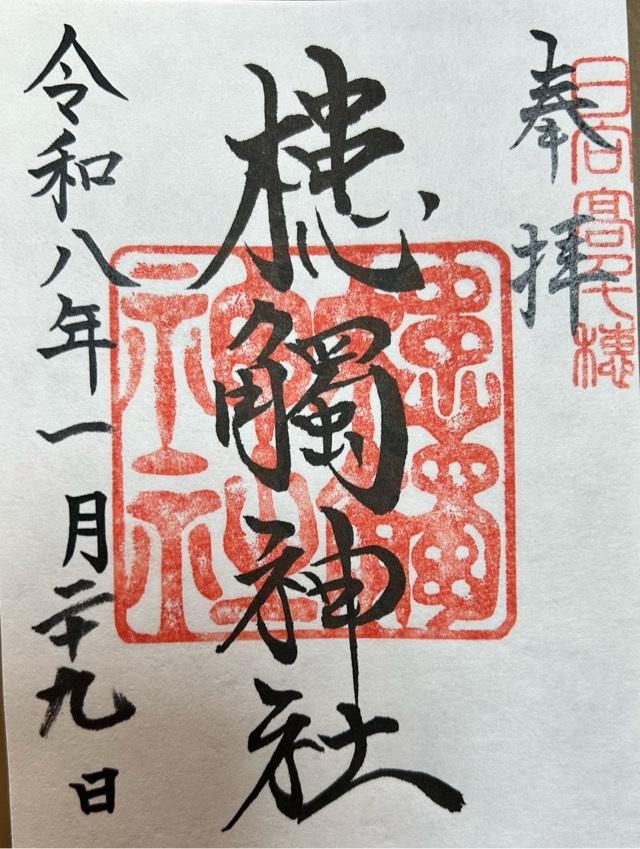 奉拝
日向高千穂
槵觸神社
令和八年一月二十九日